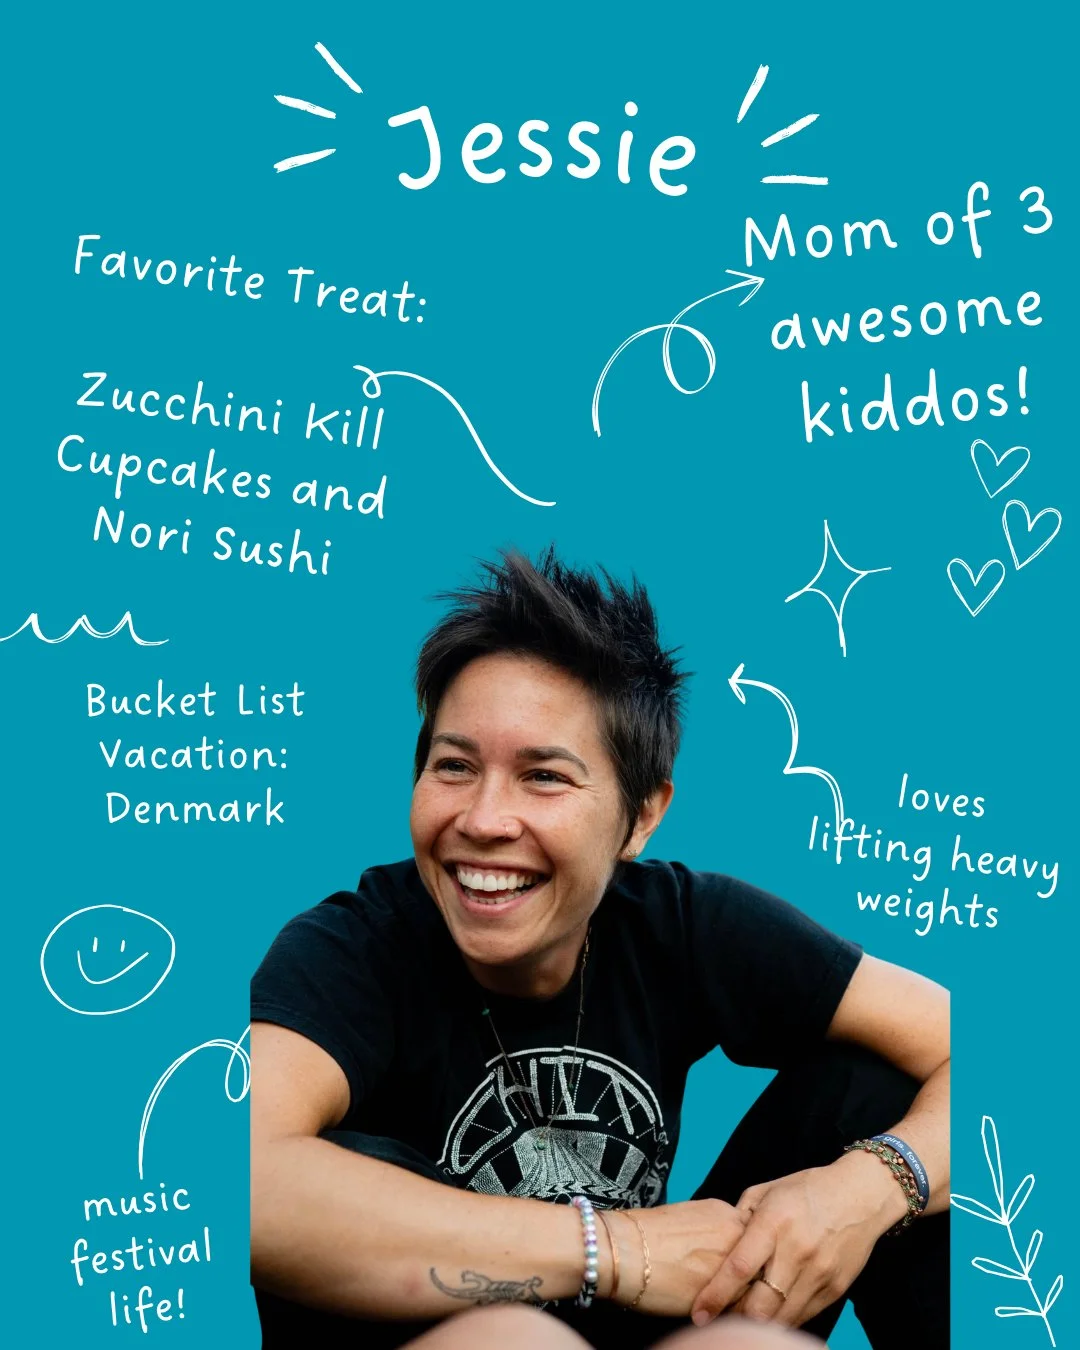 Jessie
Favorite Treat:
Zucchini Kill
Cupcakes and
Nori Sushi
Mom of 3
awesome
kiddos!
Bucket List
Vacation:
Denmark
loves
lifting heavy
weights
music
festival
life!
girls, forever